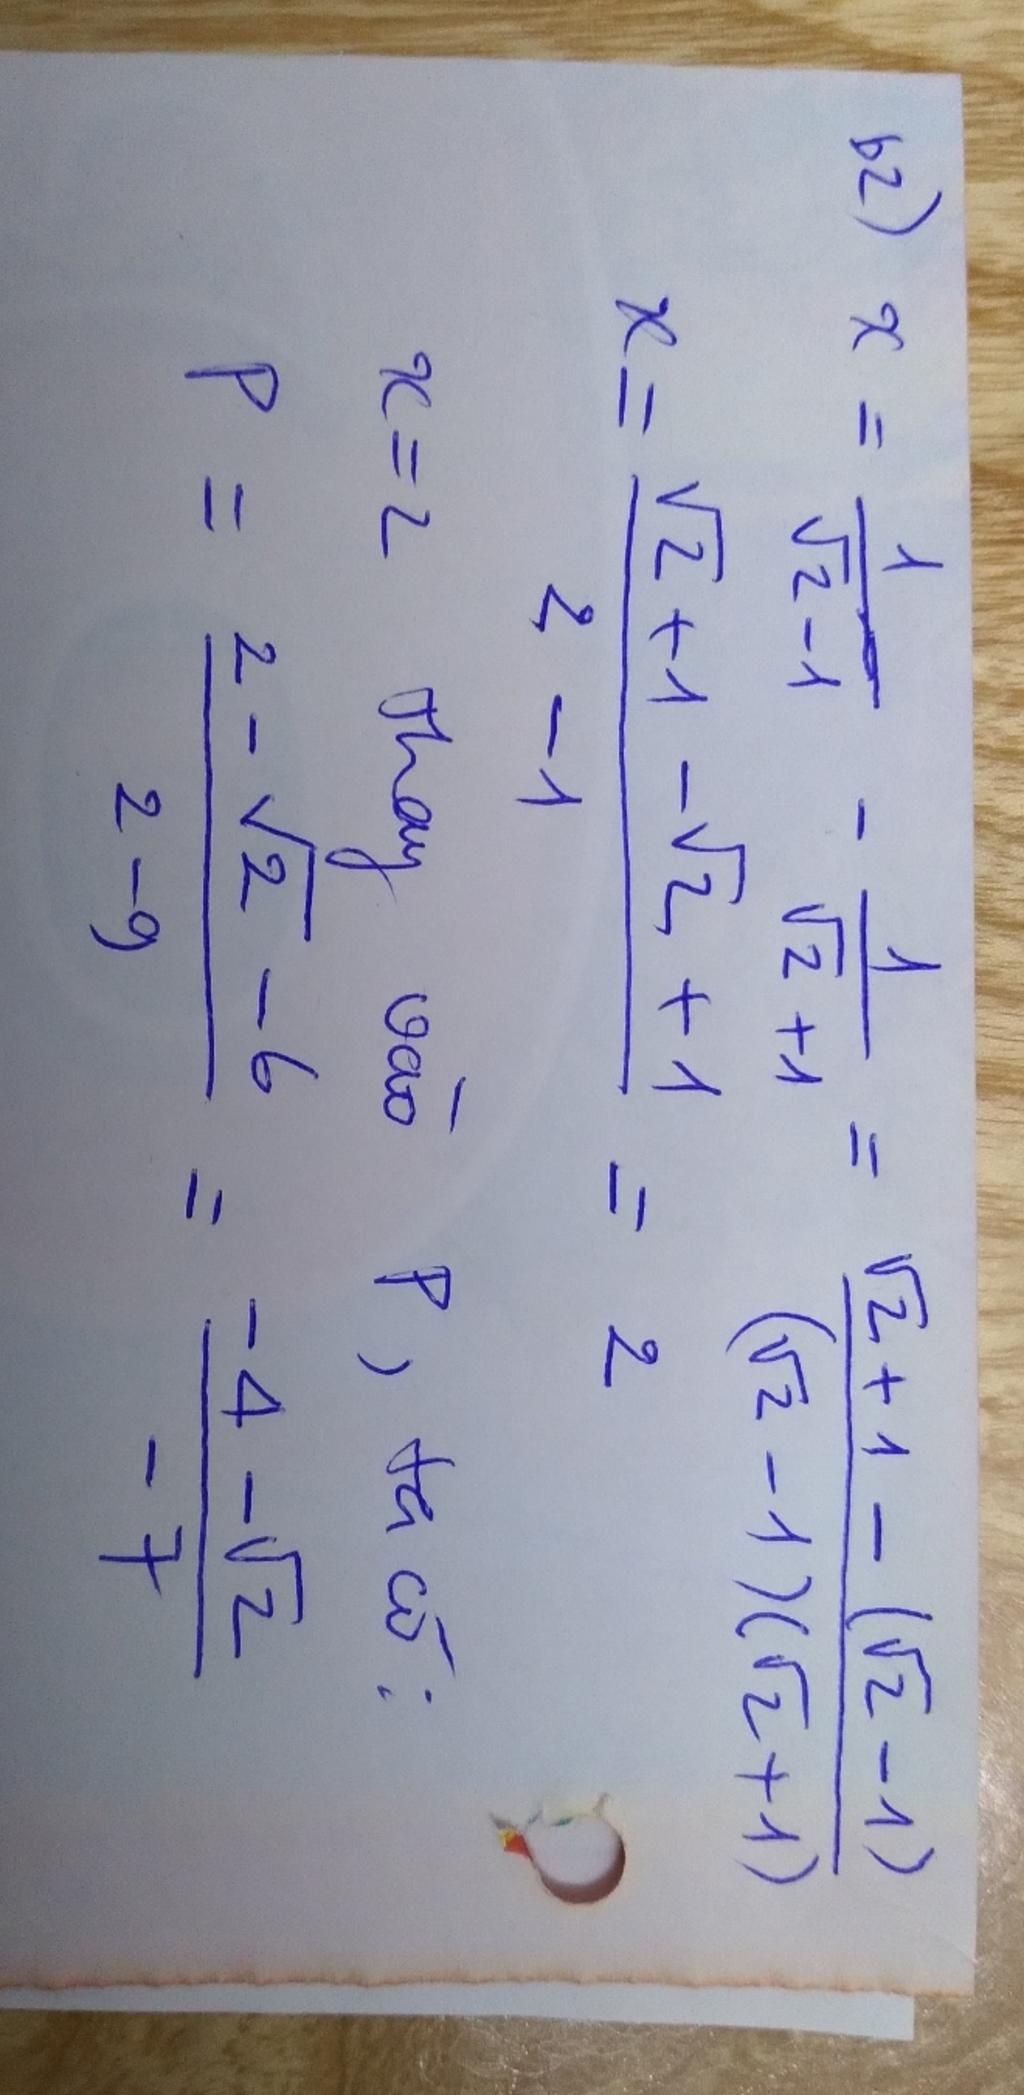 b2) x = 1/(√2-1) - 1/(√2+1) = (√2+1-(√2-1))/((√2-1)(√2+1))
x = (√2+1-√2+1)/(2-1) = 2
x=2 thay vào P, ta có:
P = (2-√2-6)/(2-9) = (-4-√2)/(-7)